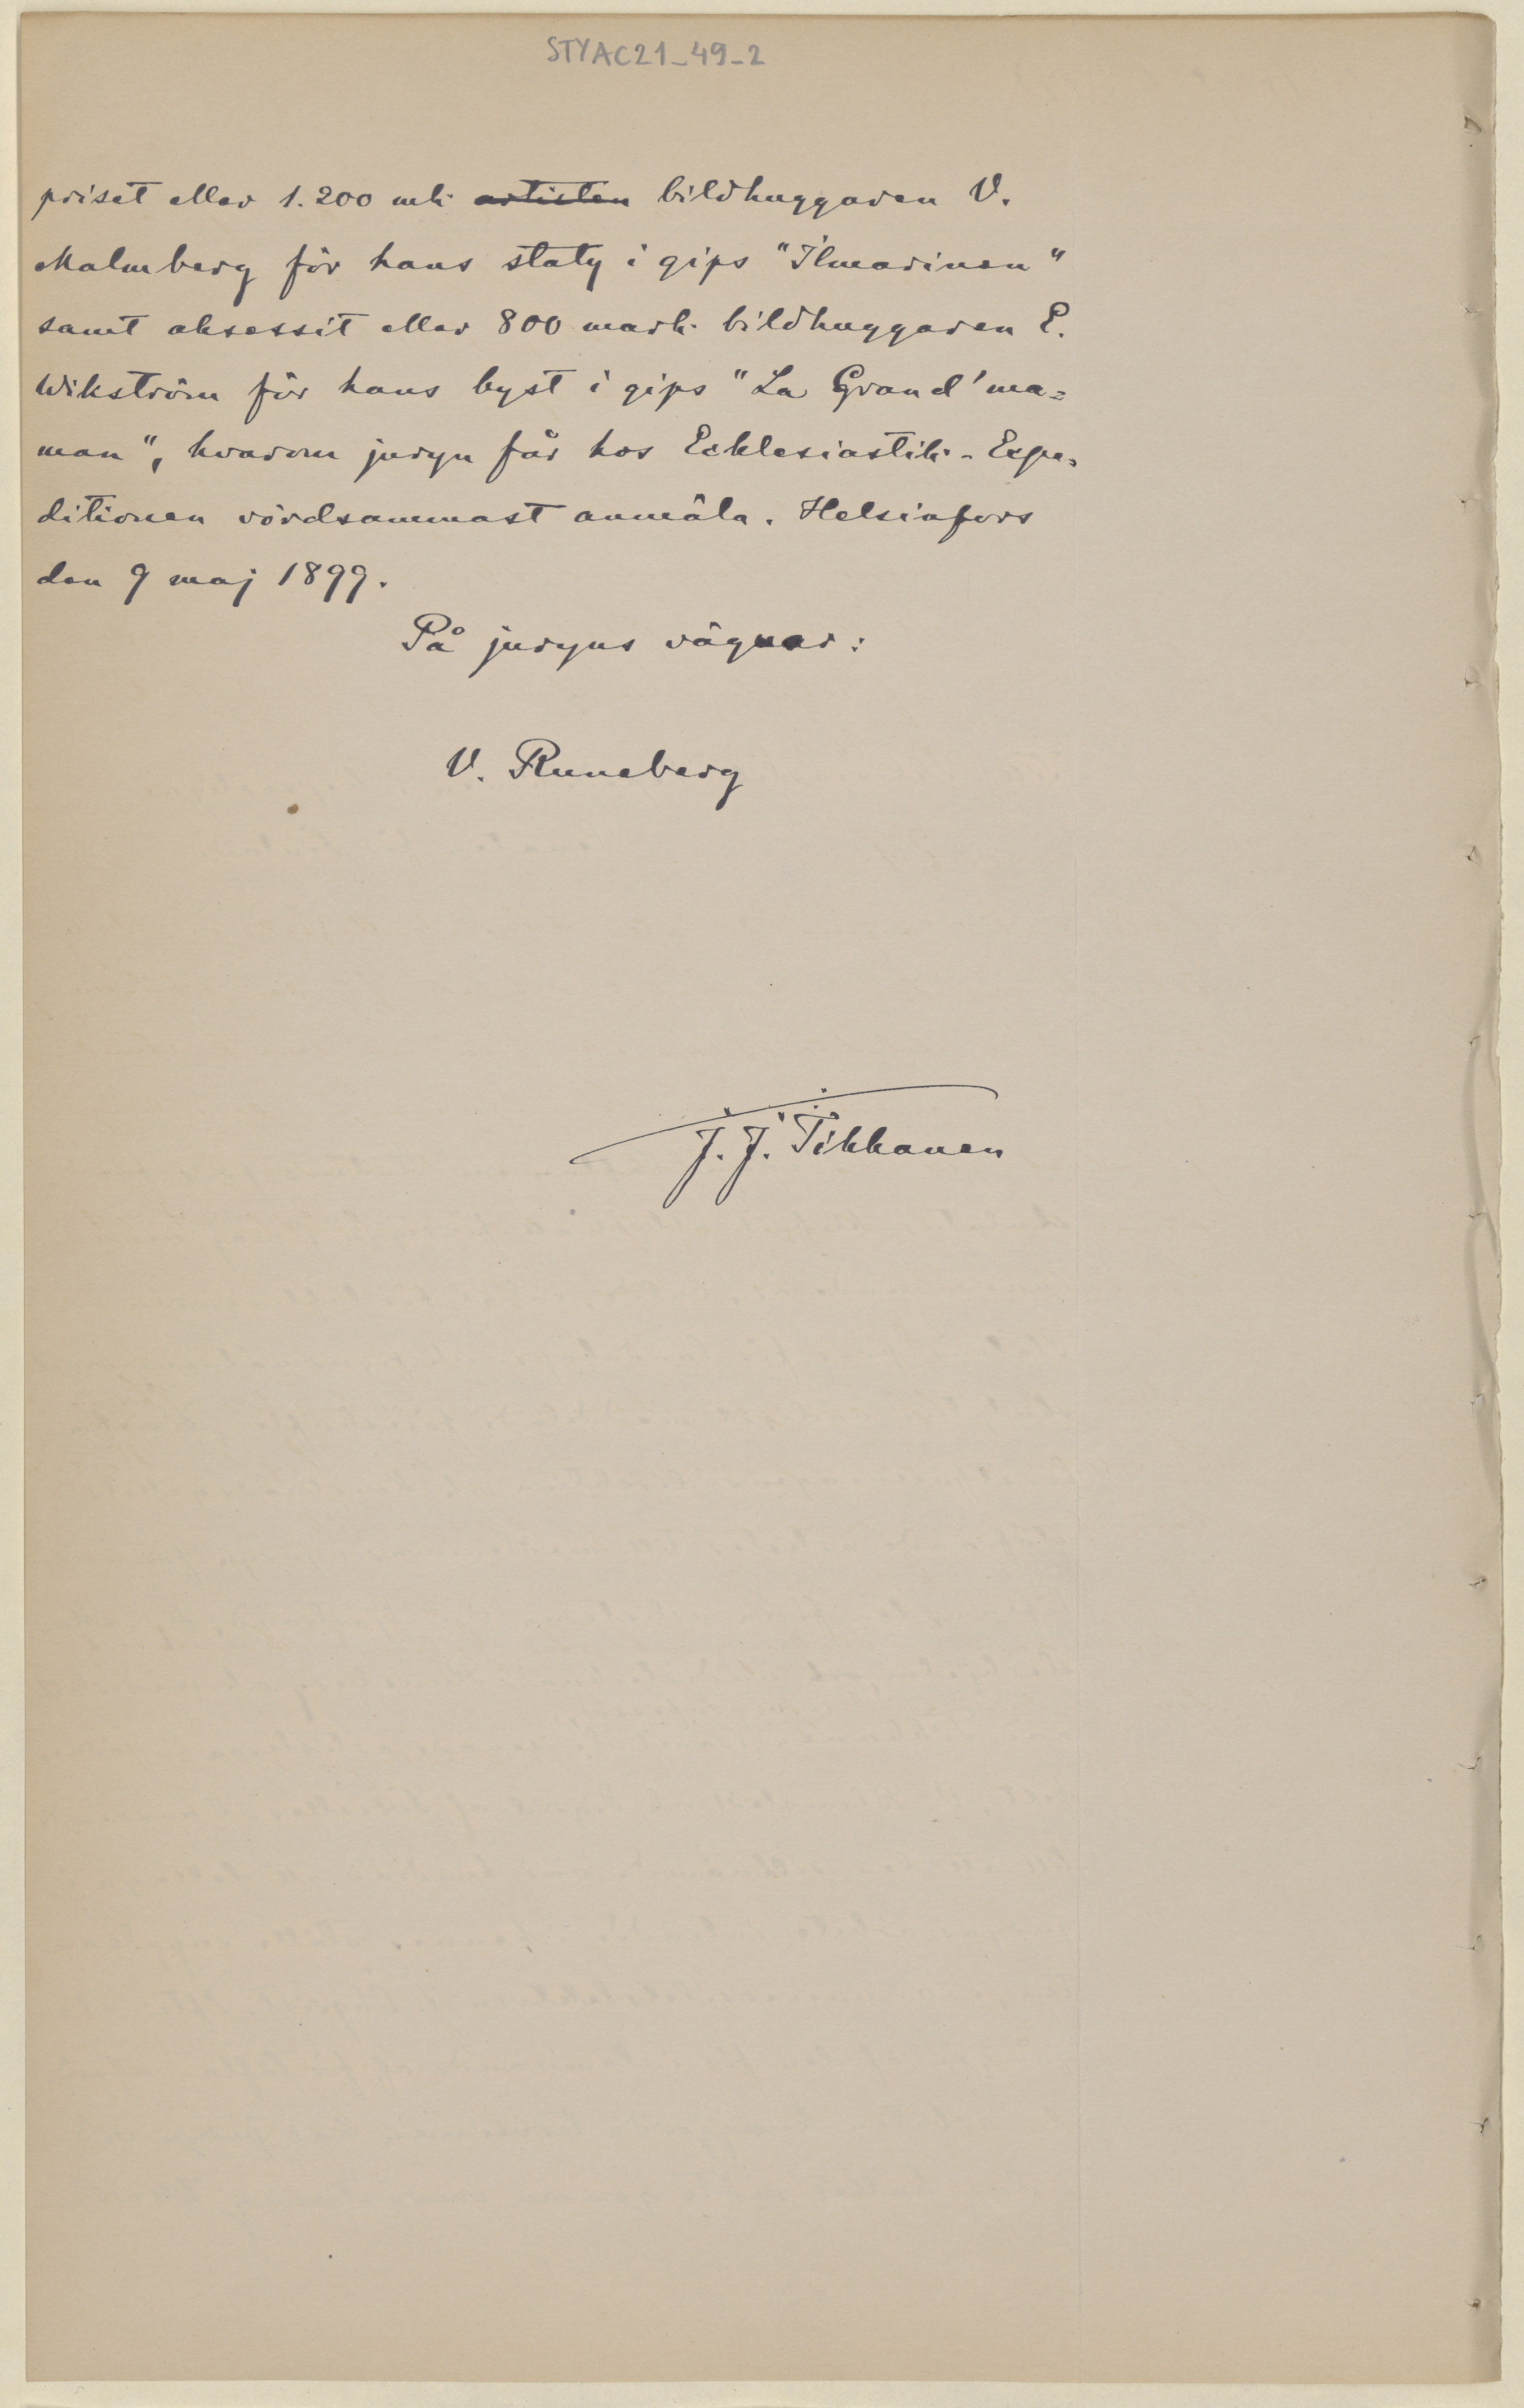 STYAC21_49_2
priset eller 1.200 mk artisten bildhuggaren V.
Malmberg för hans staty i gips "Ilmarinen"
samt aksessit eller 800 mark bildhuggaren E.
Wikström för hans byst i gips "La Grand'ma=
man", hvarom juryn får hos Ecklesiastik-Expe=
ditionen vördsammast anmäla. Helsinfors
den 9 maj 1899.
På juryns vägnar:
V. Runeberg
J. J. Tikkanen